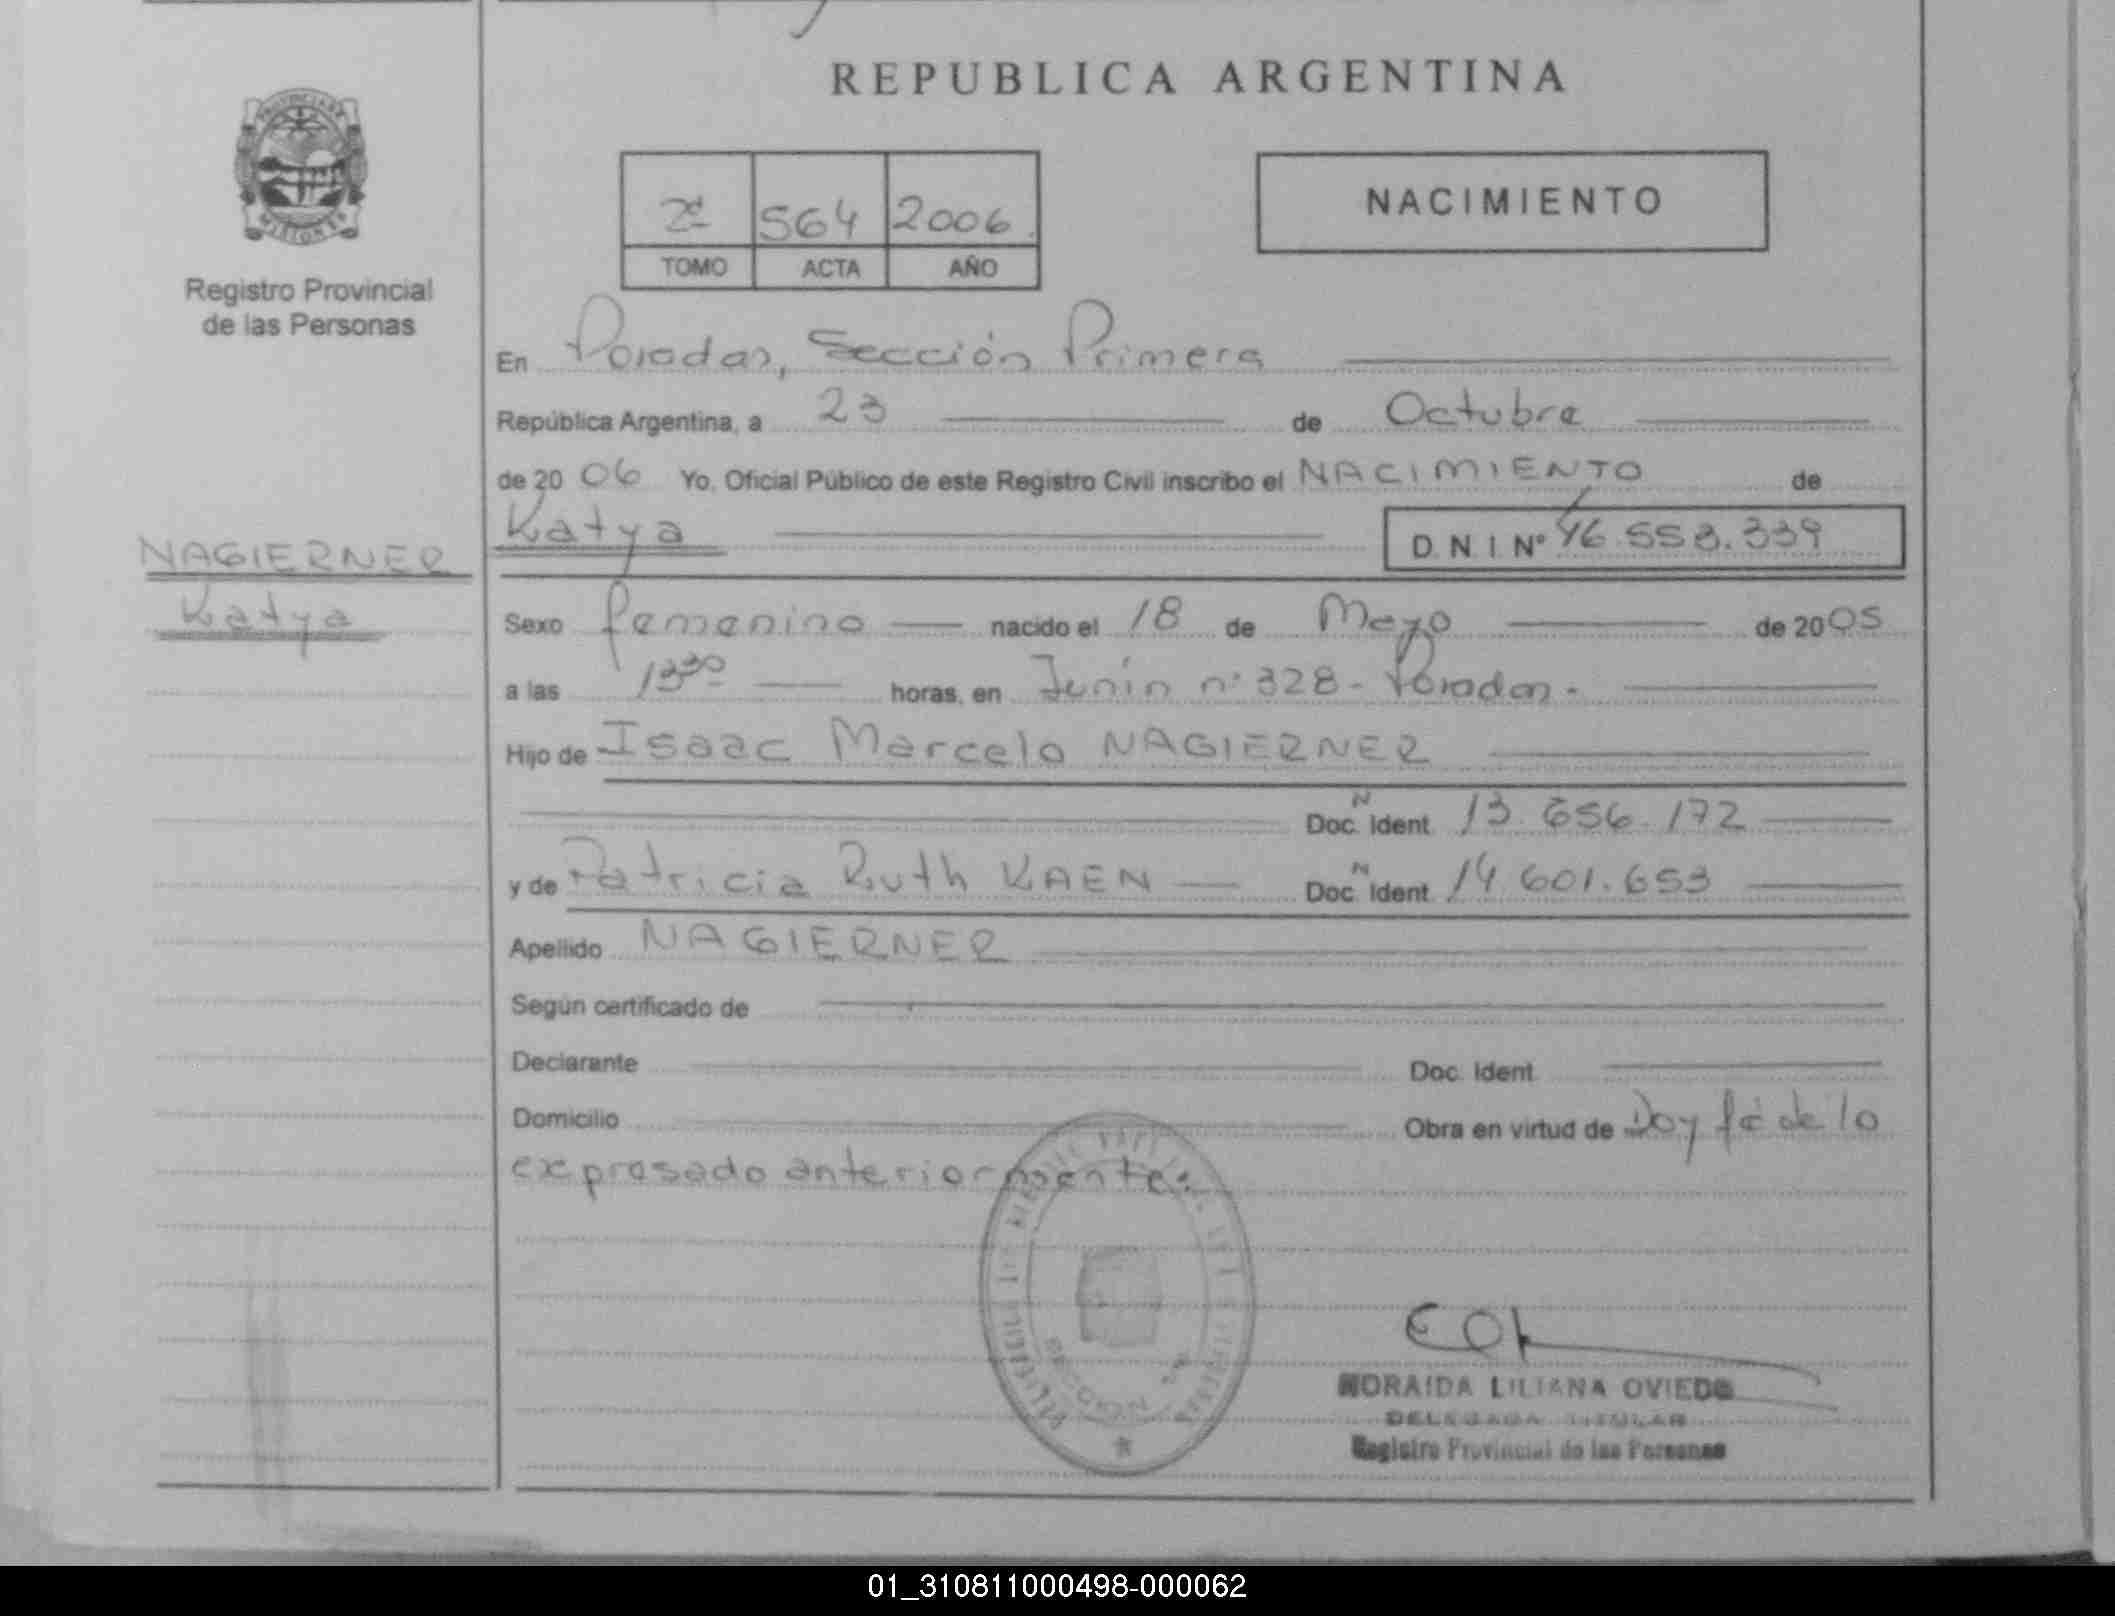 REPUBLICA ARGENTINA
PROVINCIA DE
MISIONES
Registro Provincial
de las Personas
2º 564 2006
TOMO ACTA AÑO
NACIMIENTO
En Posadas, Sección Primera
República Argentina, a 23 de Octubre
de 2006 Yo, Oficial Público de este Registro Civil inscribo el NACIMIENTO de
Katya D.N.I Nº 46.553.339
NAGIERNER
Katya
Sexo femenino nacido el 18 de Mayo de 2005
a las 13 30 horas, en Junín nº 328 - Posadas -
Hijo de Isaac Marcelo NAGIERNER
Doc. Ident. N 13.656.172
y de Patricia Ruth KAEN Doc. Ident. N 14.601.653
Apellido NAGIERNER
Según certificado de
Declarante Doc. Ident.
Domicilio Obra en virtud de Doy fé de lo
expresado anteriormente.
SECCION
NORAIDA LILIANA OVIEDO
DELEGADA TITULAR
Registro Provincial de las Personas
01_310811000498-000062